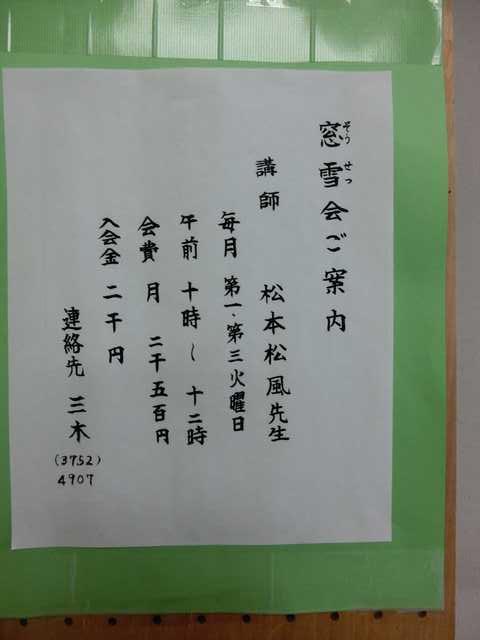 窓雪会ご案内
そうせつ
講師 松本松風先生
毎月 第一、第三火曜日
午前 十時~十二時
会費 月 二千五百円
入会金 二千円
連絡先 三木
(3752)
4907